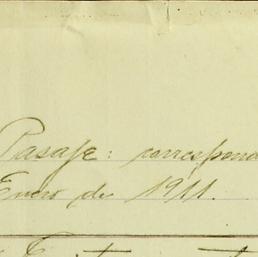 Pasaje: correspond
Enero de 1911.